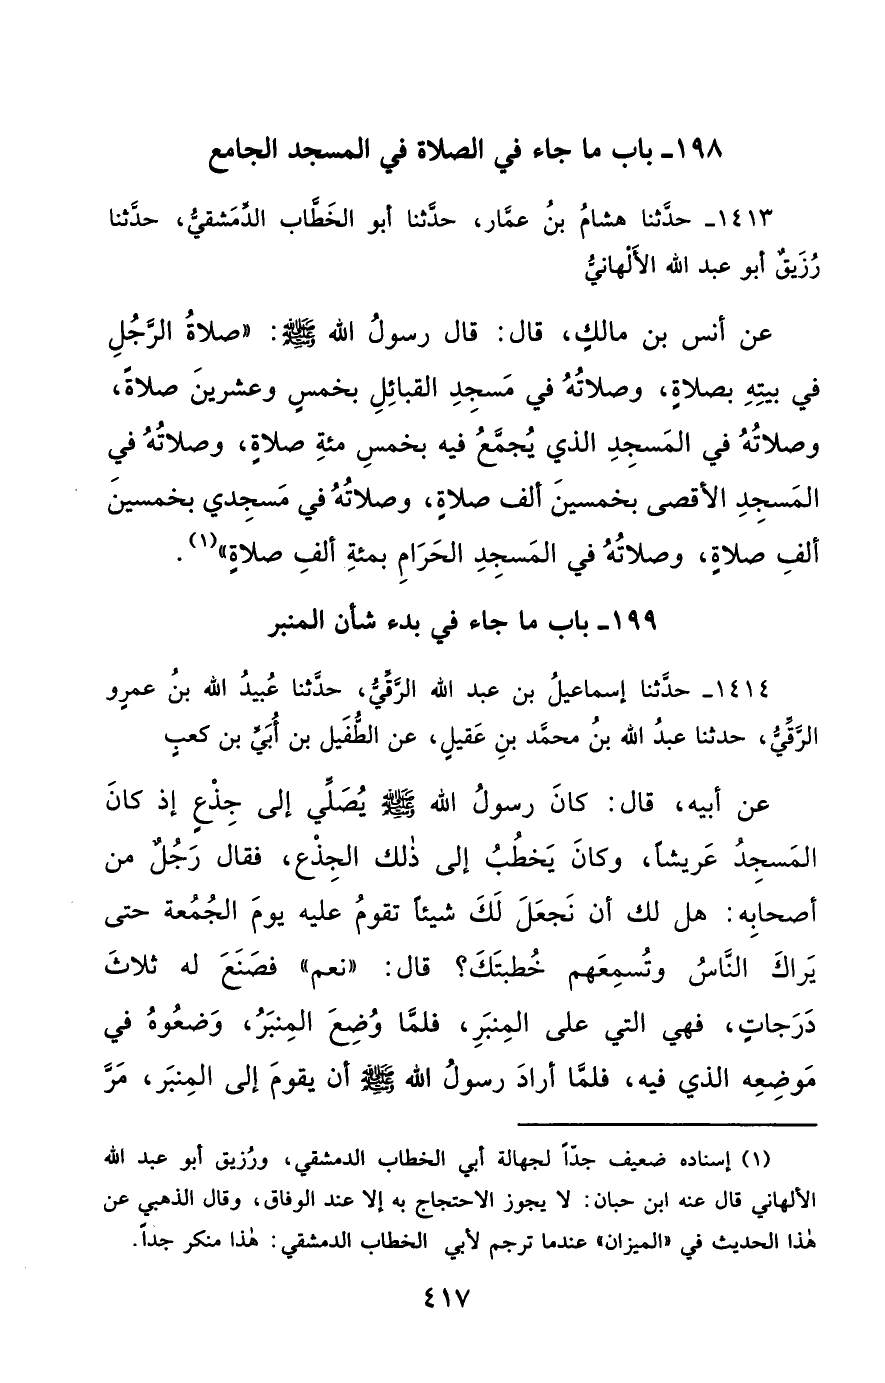 ١٩٨ـ باب ما جاء في الصلاة في المسجد الجامع
١٤١٣ـ حدَّثنا هشامُ بنُ عمَّار، حدَّثنا أبو الخَطَّاب الدِّمَشقيُّ، حدَّثنا
رُزَيقٌ أبو عبد الله الأَلْهانيُّ
عن أنس بن مالكٍ، قال: قال رسولُ الله ﷺ: «صلاةُ الرَّجُلِ
في بيتِهِ بصلاةٍ، وصلاتُهُ في مَسجِدِ القبائِلِ بخمسٍ وعشرينَ صلاةً،
وصلاتُهُ في المَسجِدِ الذي يُجمَّعُ فيه بخمسِ مئةِ صلاةٍ، وصلاتُهُ في
المَسجِدِ الأقصى بخمسينَ ألف صلاةٍ، وصلاتُهُ في مَسجِدي بخمسينَ
ألفِ صلاةٍ، وصلاتُهُ في المَسجِدِ الحَرَامِ بمئةِ ألفِ صلاةٍ»(١).
١٩٩ـ باب ما جاء في بدء شأن المنبر
١٤١٤ـ حدَّثنا إسماعيلُ بن عبد الله الرَّقِّيُّ، حدَّثنا عُبيدُ الله بنُ عمرٍو
الرَّقِّيُّ، حدثنا عبدُ الله بنُ محمَّد بنِ عَقيلٍ، عن الطُّفَيل بن أُبَيِّ بن كعبٍ
عن أبيه، قال: كانَ رسولُ الله ﷺ يُصَلِّي إلى جِذْعٍ إذ كانَ
المَسجِدُ عَريشاً، وكانَ يَخطُبُ إلى ذٰلك الجِذْع، فقال رَجُلٌ من
أصحابِه: هل لك أن نَجعَلَ لَكَ شيئاً تقومُ عليه يومَ الجُمُعة حتى
يَراكَ النَّاسُ وتُسمِعَهم خُطبتَكَ؟ قال: «نعم» فصَنَعَ له ثلاثَ
دَرَجاتٍ، فهي التي على المِنبَرِ، فلمَّا وُضِعَ المِنبَرُ، وَضعُوهُ في
مَوضِعِه الذي فيه، فلمَّا أرادَ رسولُ الله ﷺ أن يقومَ إلى المِنبَر، مَرَّ
(١) إسناده ضعيف جدّاً لجهالة أبي الخطاب الدمشقي، ورُزيق أبو عبد الله
الألهاني قال عنه ابن حبان: لا يجوز الاحتجاج به إلا عند الوفاق، وقال الذهبي عن
هٰذا الحديث في «الميزان» عندما ترجم لأبي الخطاب الدمشقي: هٰذا منكر جداً.
٤١٧